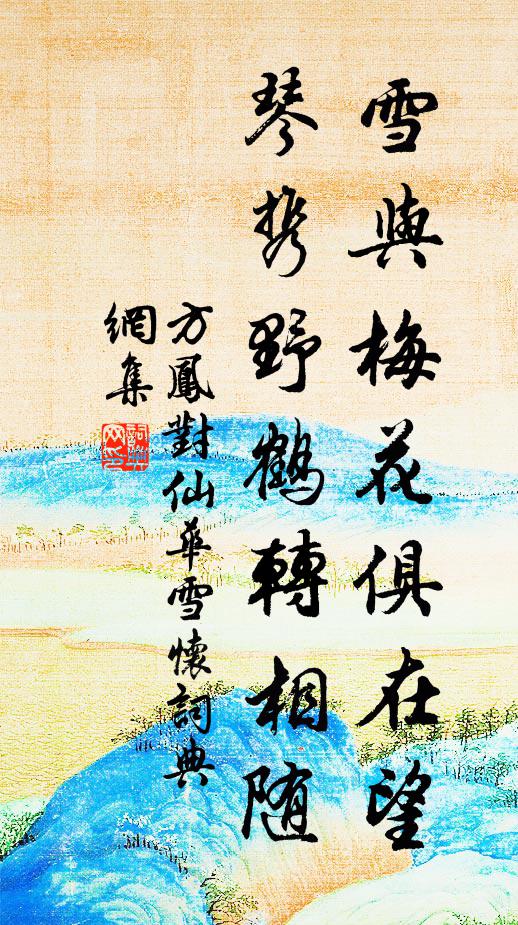 雪與梅花俱在望
琴携野鶴轉相随
方鳳對仙華雪懷詞典
網集